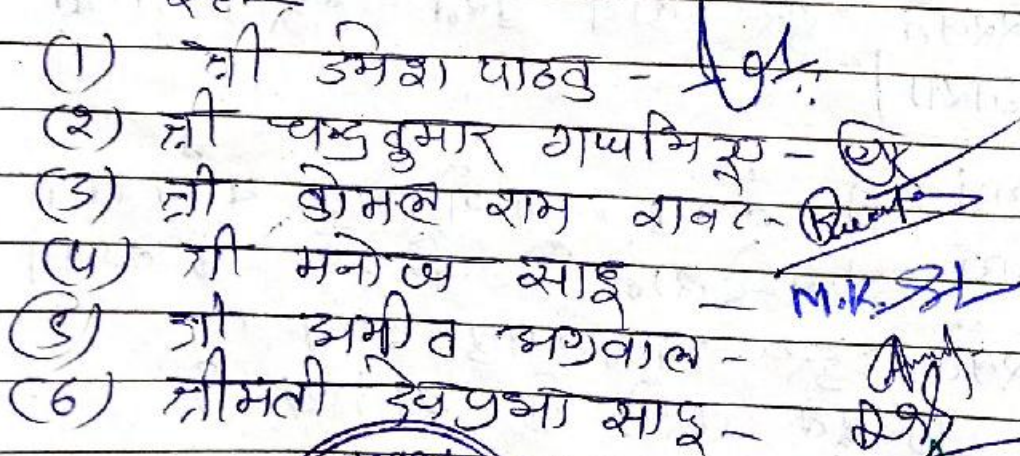 (1) श्री उमेश पाठक -
(२) श्री चन्द्रकुमार -
(3) श्री कोमल राम रावटे -
(4) श्री मनोज साहू - M.K.
(5) श्री अमीत अग्रवाल -
(6) श्रीमती देवप्रभा साहू -